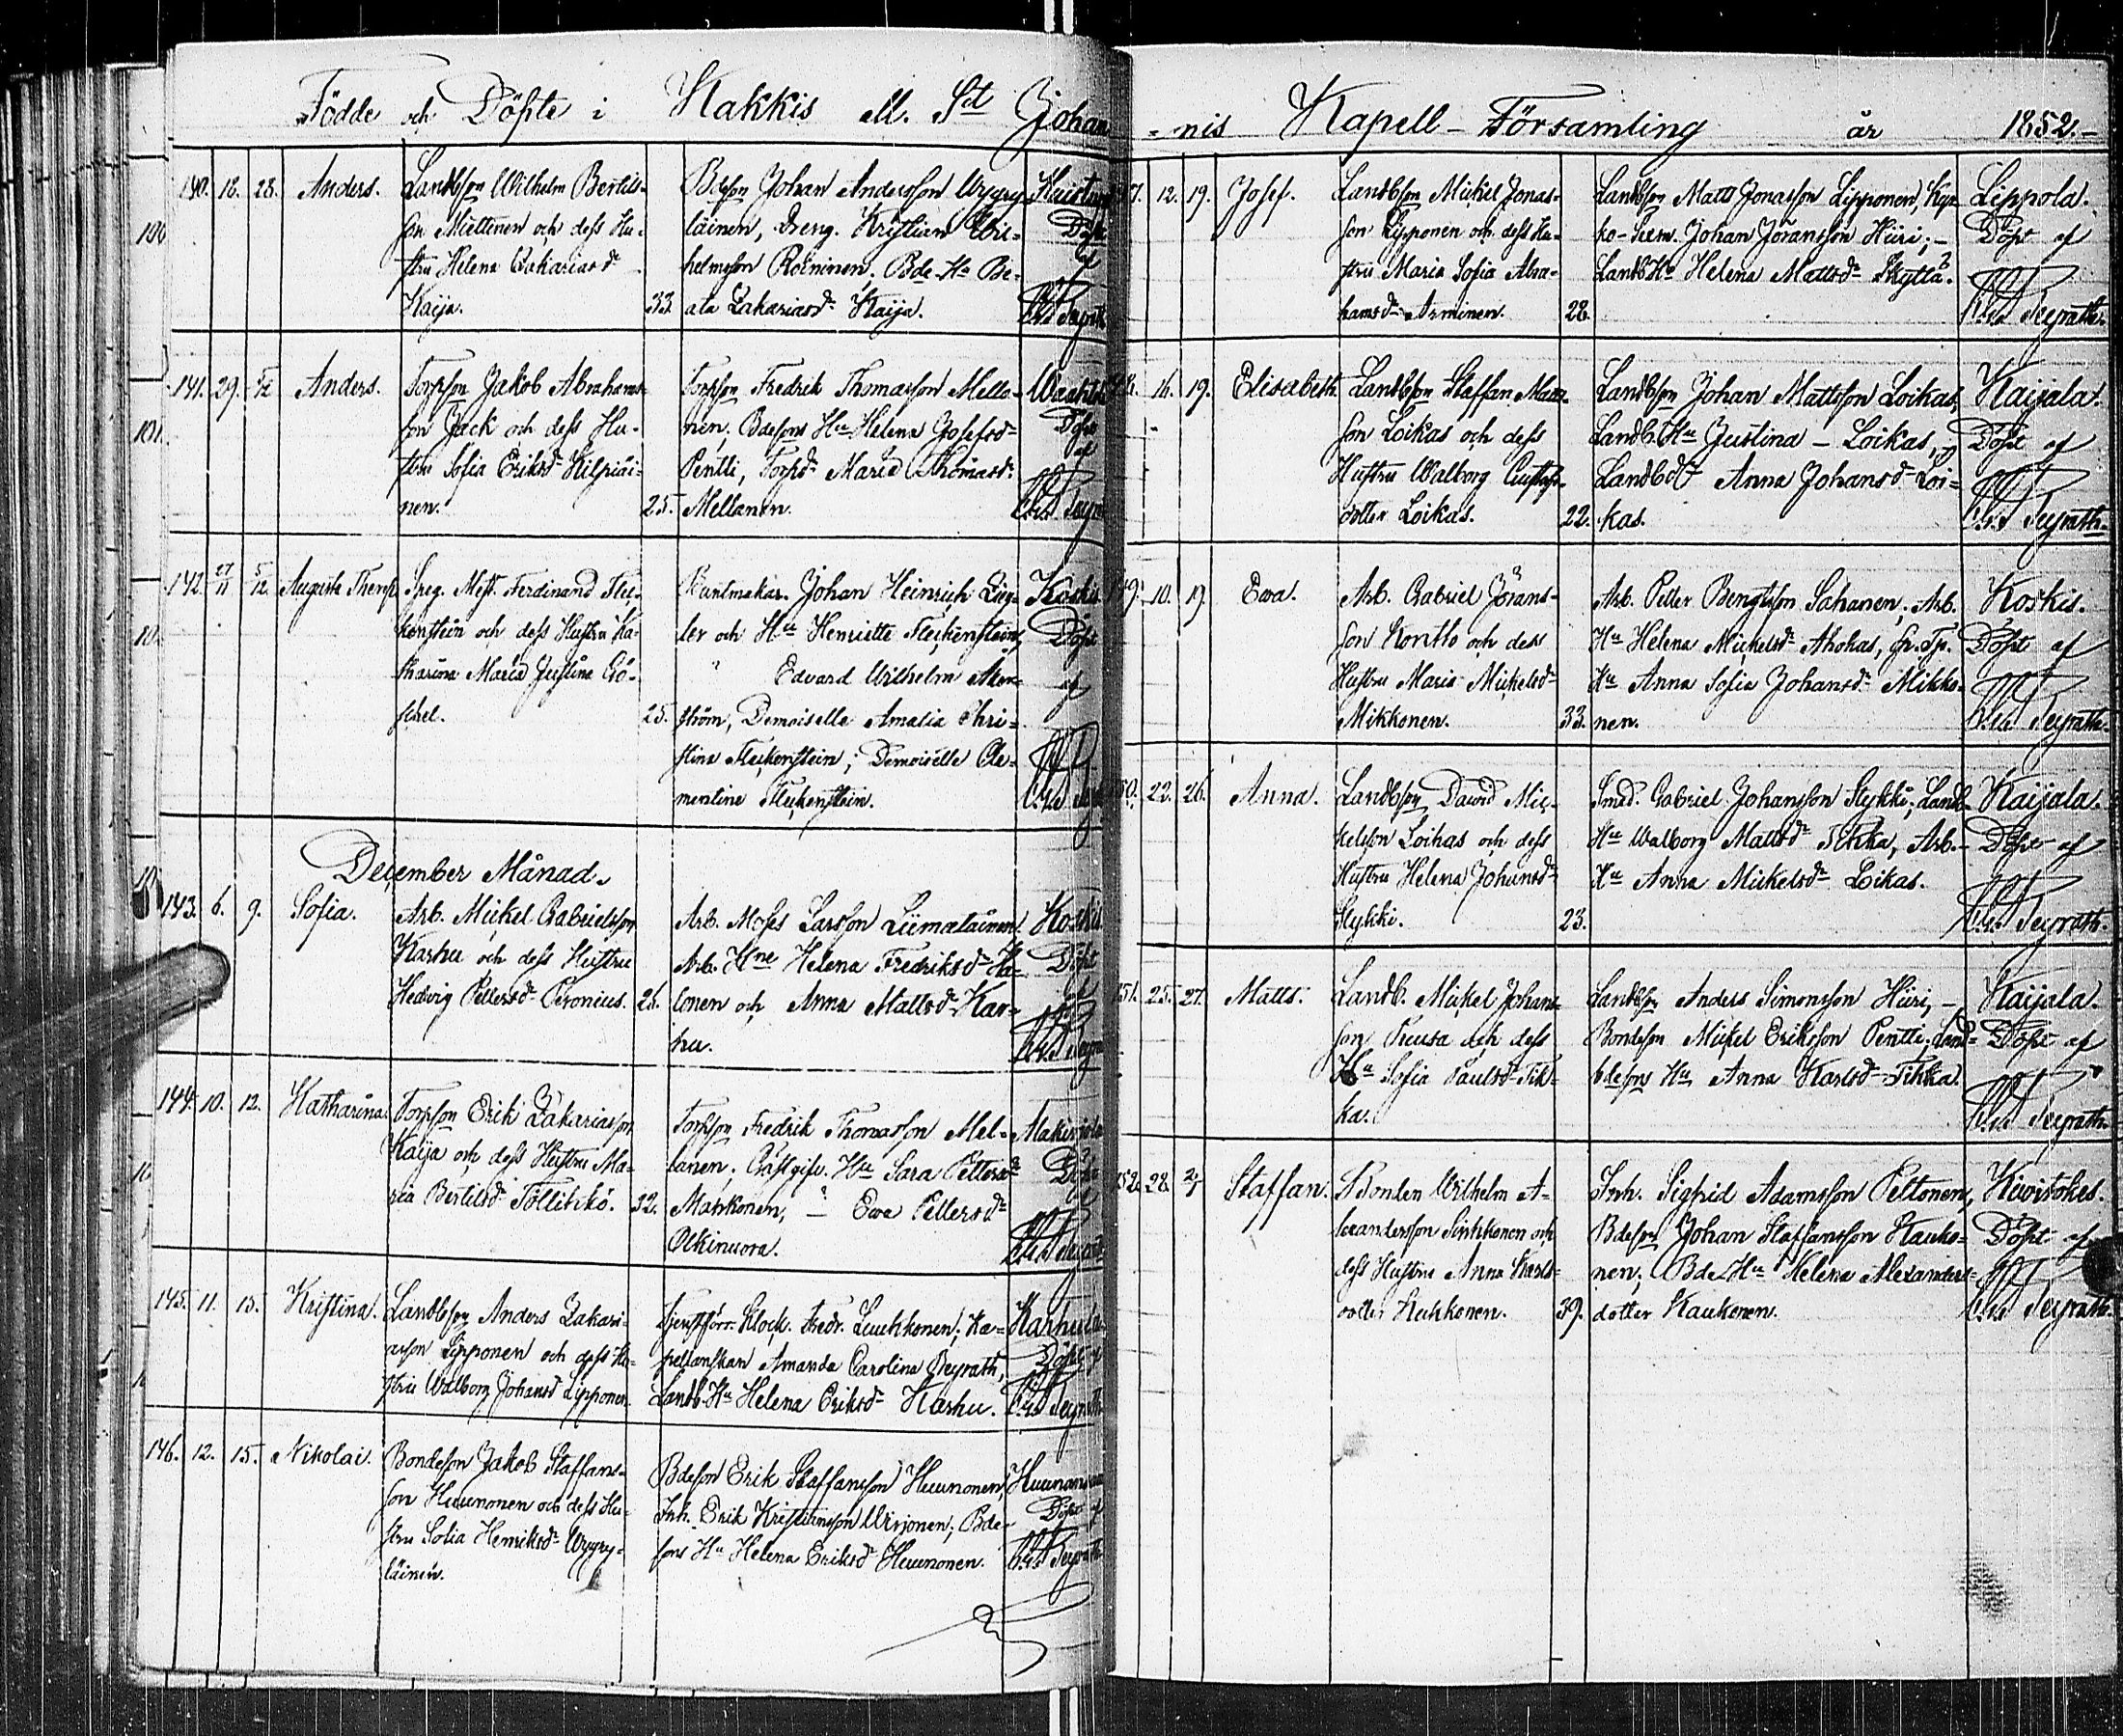 Födde och Döpte i Kakkis ell. St Johan
190. 18. 28. Anders. Landbson Wilhelm Bertils-
son Miettinen och dess Hu-
stru Helena Zakariasd
Kaija. 33.
Bdeson Johan Andersson Wyyry-
läinen, Dreng. Kristian Wil-
helmsson Roininen. Bde Hu Be-
ata Zakariasd Kaija.
Döpt
af
141. 29. Anders. Torpson Jakob Abrahams-
son Jack och dess Hu-
stru Sofia Eriksd Hilpiäi-
nen. 25.
Torpson Fredrik Thomasson Mella-
nen, Bdesons Hu Helena Josefsd
Pentti, Torpd Maria Thomasd
Mellanen.
Döpt
af
142. 27/11 5/12 Augusta Theres
Speg. Mest. Ferdinand Flec-
kenstein och dess Hustru Ka-
tharina Maria Justina Gö-
schel. 25.
Buntmakar. Johan Heinrich Zieg-
ler och Hu Henriette Fleckenstein,
" Edvard Wilhelm
ström, Demoiselle Amalia Chri-
stina Fleckenstein, Demoiselle Cle-
mentine Fleckenstein.
Koskis
Döpt
af
December Månad.
143. 6. 9. Sofia. Arb. Mickel Gabrielsson
Karhu och dess Hustru
Hedvig Pettersd Peronius. 26.
Arb. Moses Larsson Liimatainen
Arb. Hne Helena Fredriksd Ha-
lonen och Anna Mattsd Kar-
hu.
Koskis
Döpt
af
144. 10. 12. Katharina. Torpson Erik Zakariasson
Kaija och dess Hustru Ma-
ria Bertilsd Töllikkö. 32.
Torpson Fredrik Thomasson Mel-
lanen, Gästgifv. Hu Sara Pettersd
Matikonen, — Ewa Pettersd
Olkinuora.
Döpt
af
145. 11. 15. Kristina. Landbson Anders Zakari-
asson Lipponen och dess Hu-
stru Walborg Johansd Lipponen.
Tjenstförr. Klock. Fredr. Leukkonen; Ka-
pellanskan Amanda Carolina Peyrath,
Landb. Hu Helena Eriksd Karhu.
Karhula
Döpt af
146. 12. 15. Nikolai. Bondeson Jakob Staffans-
son Huunonen och dess Hu-
stru Sofia Henriksd Wyyry-
läinen.
Bdeson Erik Staffansson Huunonen,
Inh. Erik Kristiansson Wirjonen; Bde-
sons Hu Helena Eriksd Huunonen.
Döpt af
-nis Kapell-Församling år 1852.-
12. 19. Josef. Landbson Mickel Jonas-
son Lipponen och dess Hu-
stru Maria Sofia Abra-
hamsd Arminen. 28.
Landbson Matts Jonasson Lipponen, Kyr-
ko-Sexm. Johan Jöransson Hiiri;-
Landb Hu Helena Mattsd Skyttä.
Lippola.
Döpt af
Peyrath.
16. 19. Elisabeth. Landbson Staffan Matts-
son Loikas och dess
Hustru Walborg Gustafs-
dotter Loikas. 22.
Landbson Johan Mattsson Loikas,
Landb. Hu Justina — Loikas,
Landbdt Anna Johansd Loi-
kas.
Kaijala.
Döpt af
Peyrath.
149. 10. 19. Ewa. Arb. Gabriel Jörans-
son Kontto och dess
Hustru Maria Mickelsd
Mikkonen. 33.
Arb. Petter Bengtsson Sahanen, Arb.
Hu Helena Mickelsd Ahokas,
Hu Anna Sofia Johansd Mikko-
nen.
Koskis.
Döpt af
Peyrath.
150. 22. 26. Anna. Landbson David Mic-
kelsson Loikas och dess
Hustru Helena Johansd
Slykki. 23.
Smed. Gabriel Johansson Slykki, Landb.
Hu Walborg Mattsd Tikka, Arb.-
Hu Anna Mickelsd Loikas.
Kaijala.
Döpt af
Peyrath.
151. 25. 27. Matts. Landb. Mickel Johans-
son Reusa och dess
Hu Sofia Paulsd Tik-
ka.
Landbson Anders Simonsson Hiiri, —
Bondeson Mickel Eriksson Pentti, Land-
bdesons Hu Anna Karlsd Tikka.
Kaijala.
Döpt af
Peyrath.
152. 28. Staffan. Bonden Wilhelm A-
lexandersson Sinkkonen och
dess Hustru Anna Karls-
dotter Kukkonen. 39.
Inh. Sigfrid Adamsson Peltonen,
Bdeson Johan Staffansson Kauko-
nen; Bde Hu Helena Alexanders-
dotter Kaukonen.
Kuristokes.
Döpt af
Peyrath.